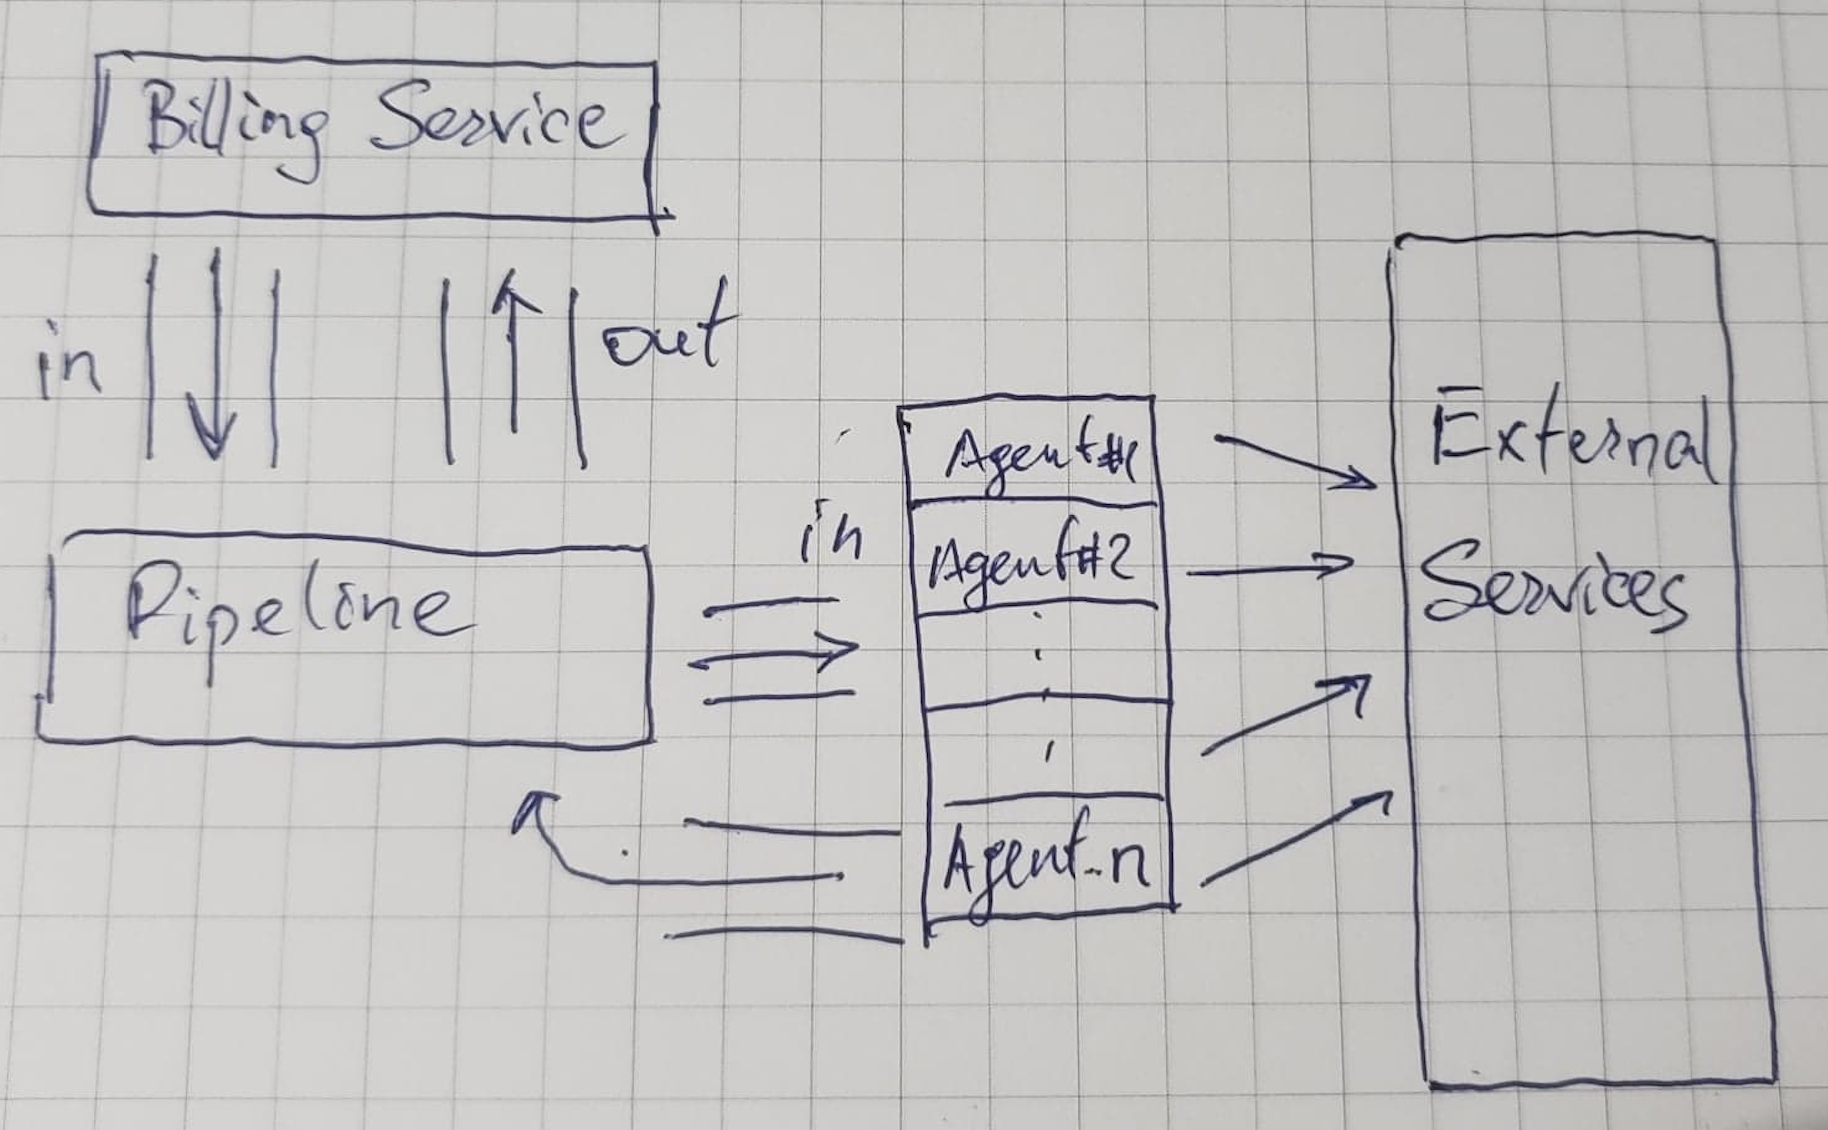 Billing Service
in
out
Pipeline
in
Agent#1
Agent#2
Agent-n
External
Services